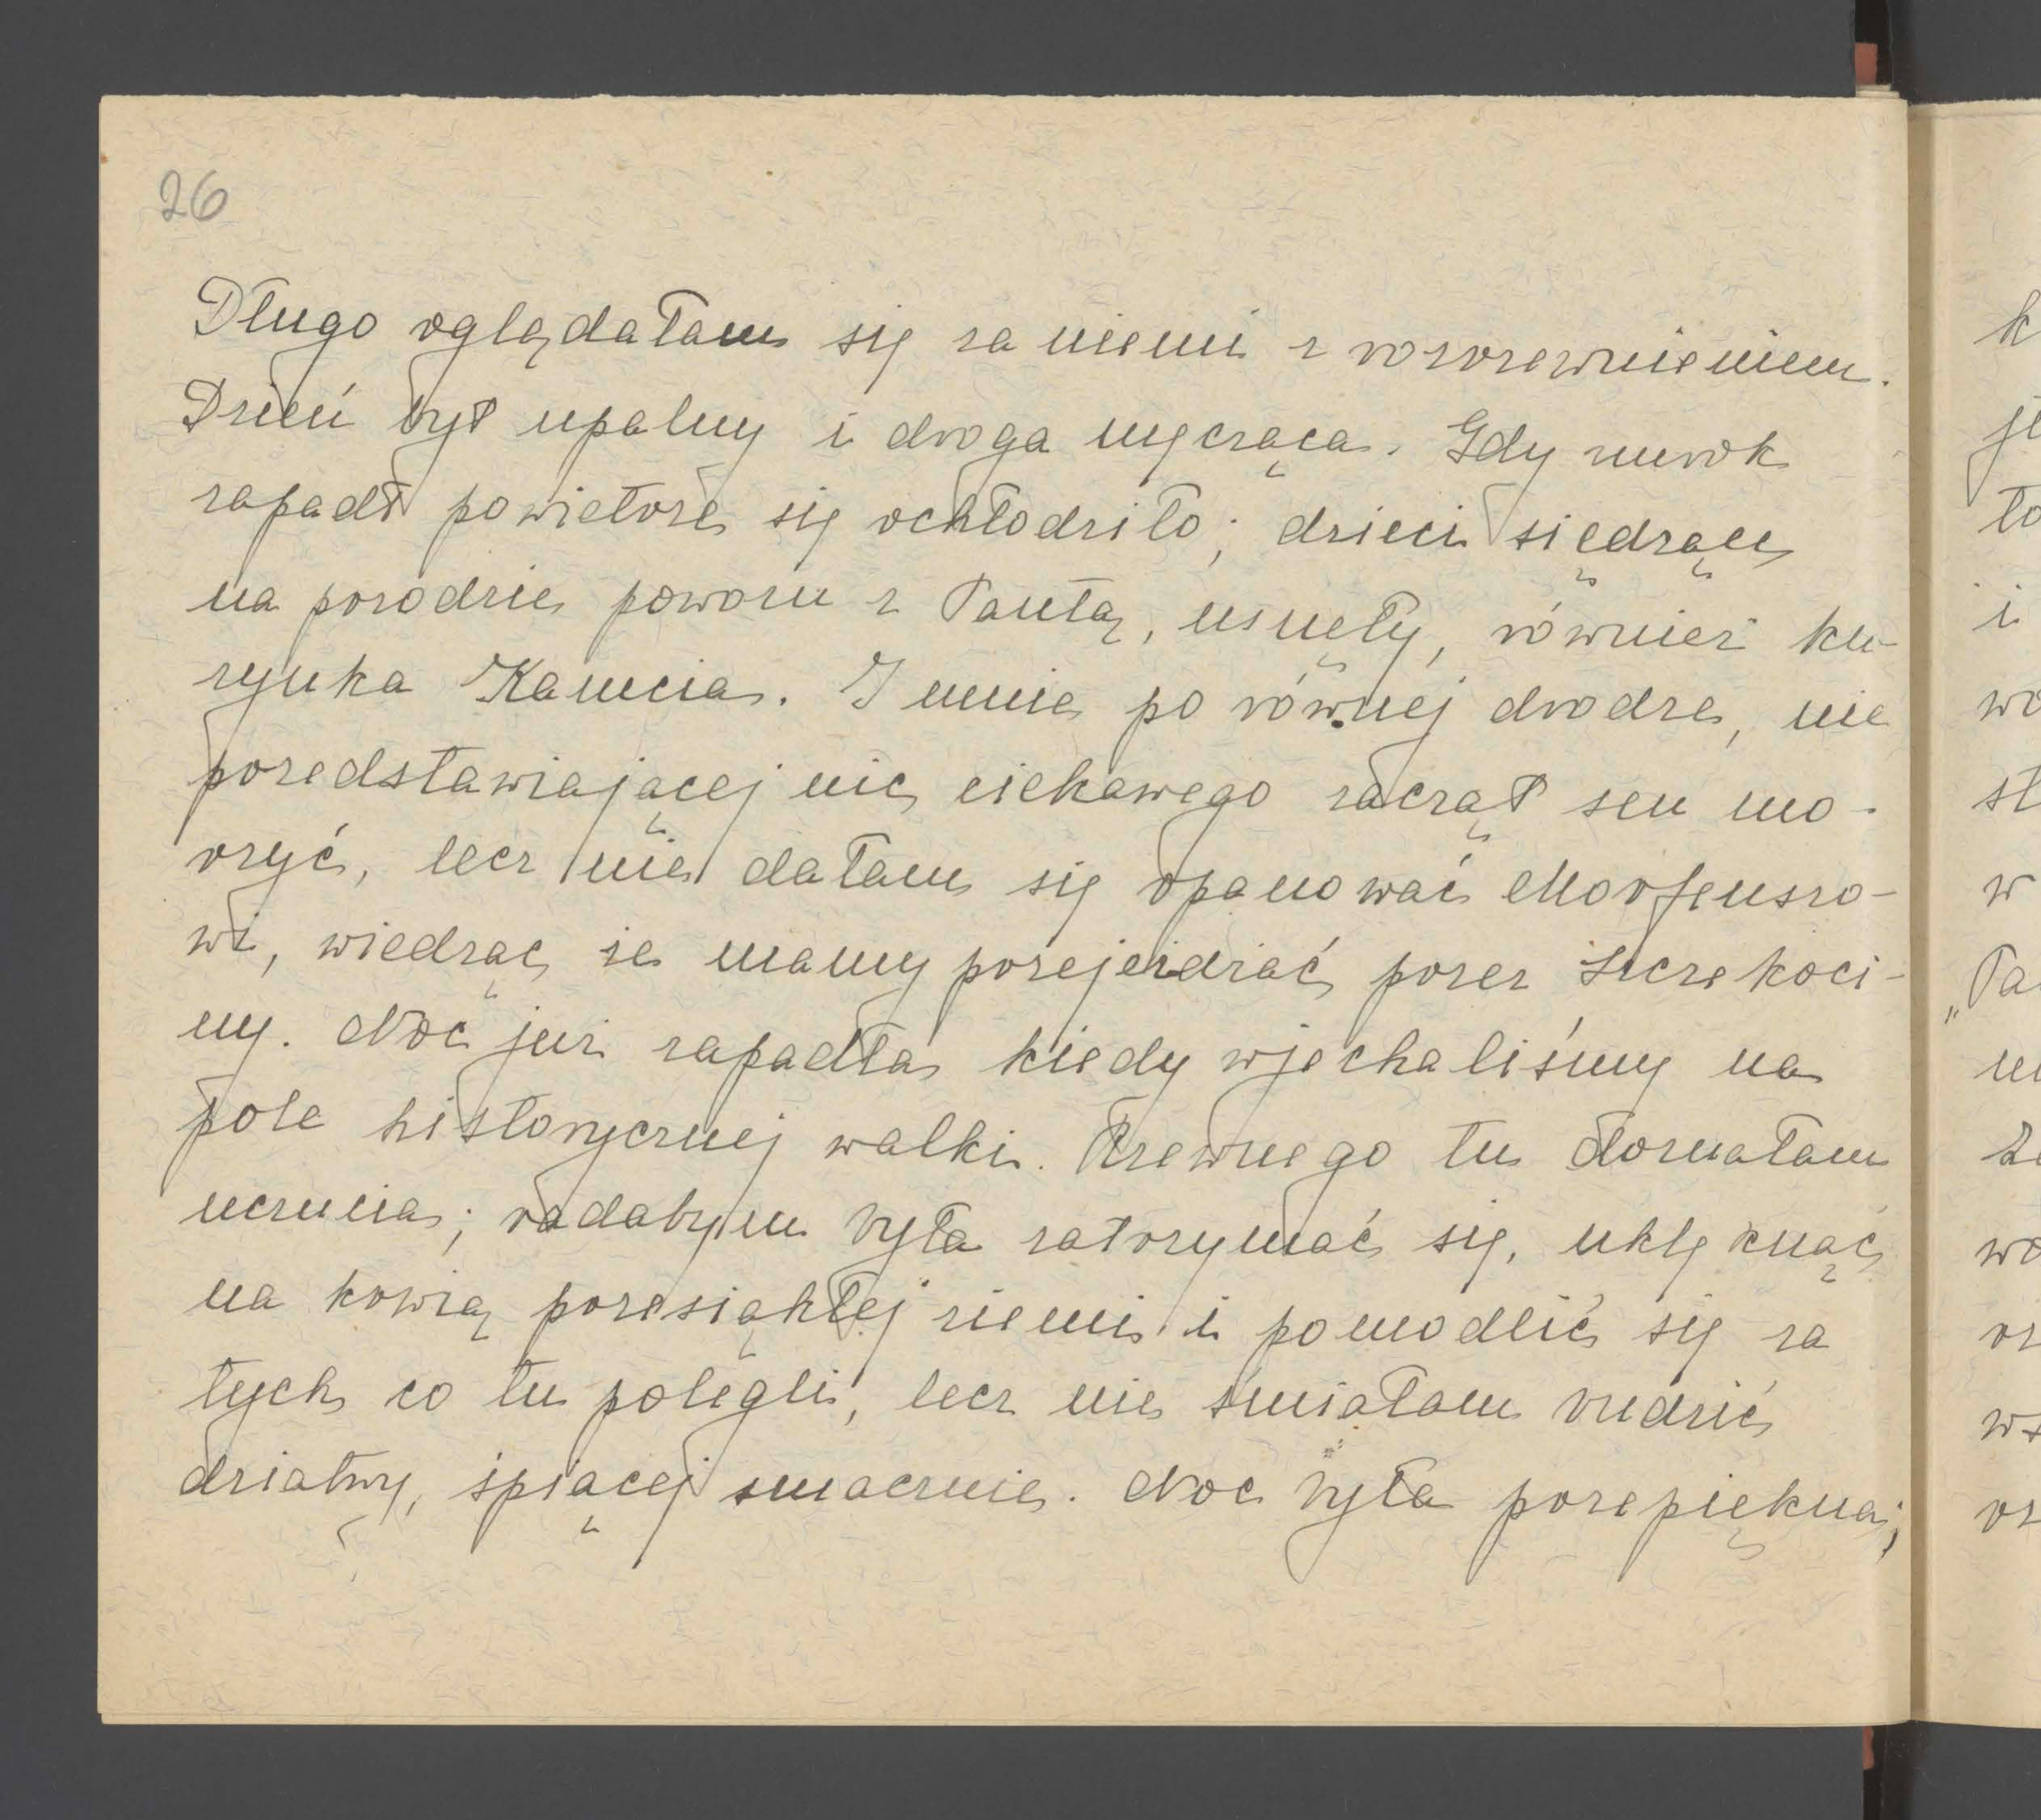 26
Długo oglądałam się za niemi z rozrzewnieniem.
Dzień był upalny i droga męcząca. Gdy zmrok
zapadł powietrze się ochłodziło; dzieci siędzące
na przodzie powozu z Pantą, usnęły, również ku-
zynka Kamcia. I mnie po równej drodze, nie
przedstawiającej nic ciekawego zaczął sen mo-
rzyć, lecz nie dałam się opanować Morfeuszo-
wi, wiedząc że mamy przejeżdżać przez Szczekoci-
ny. Noc już zapadła kiedy wjechaliśmy na
pole historycznej walki. Rzewnego tu doznałam
uczucia; radabym była zatrzymać się, uklęknąć
na krwią przesiąkłej ziemi i pomodlić się za
tych co tu polegli, lecz nie śmiałam budzić
dziatwy, śpiącej smacznie. Noc była przepiękna;